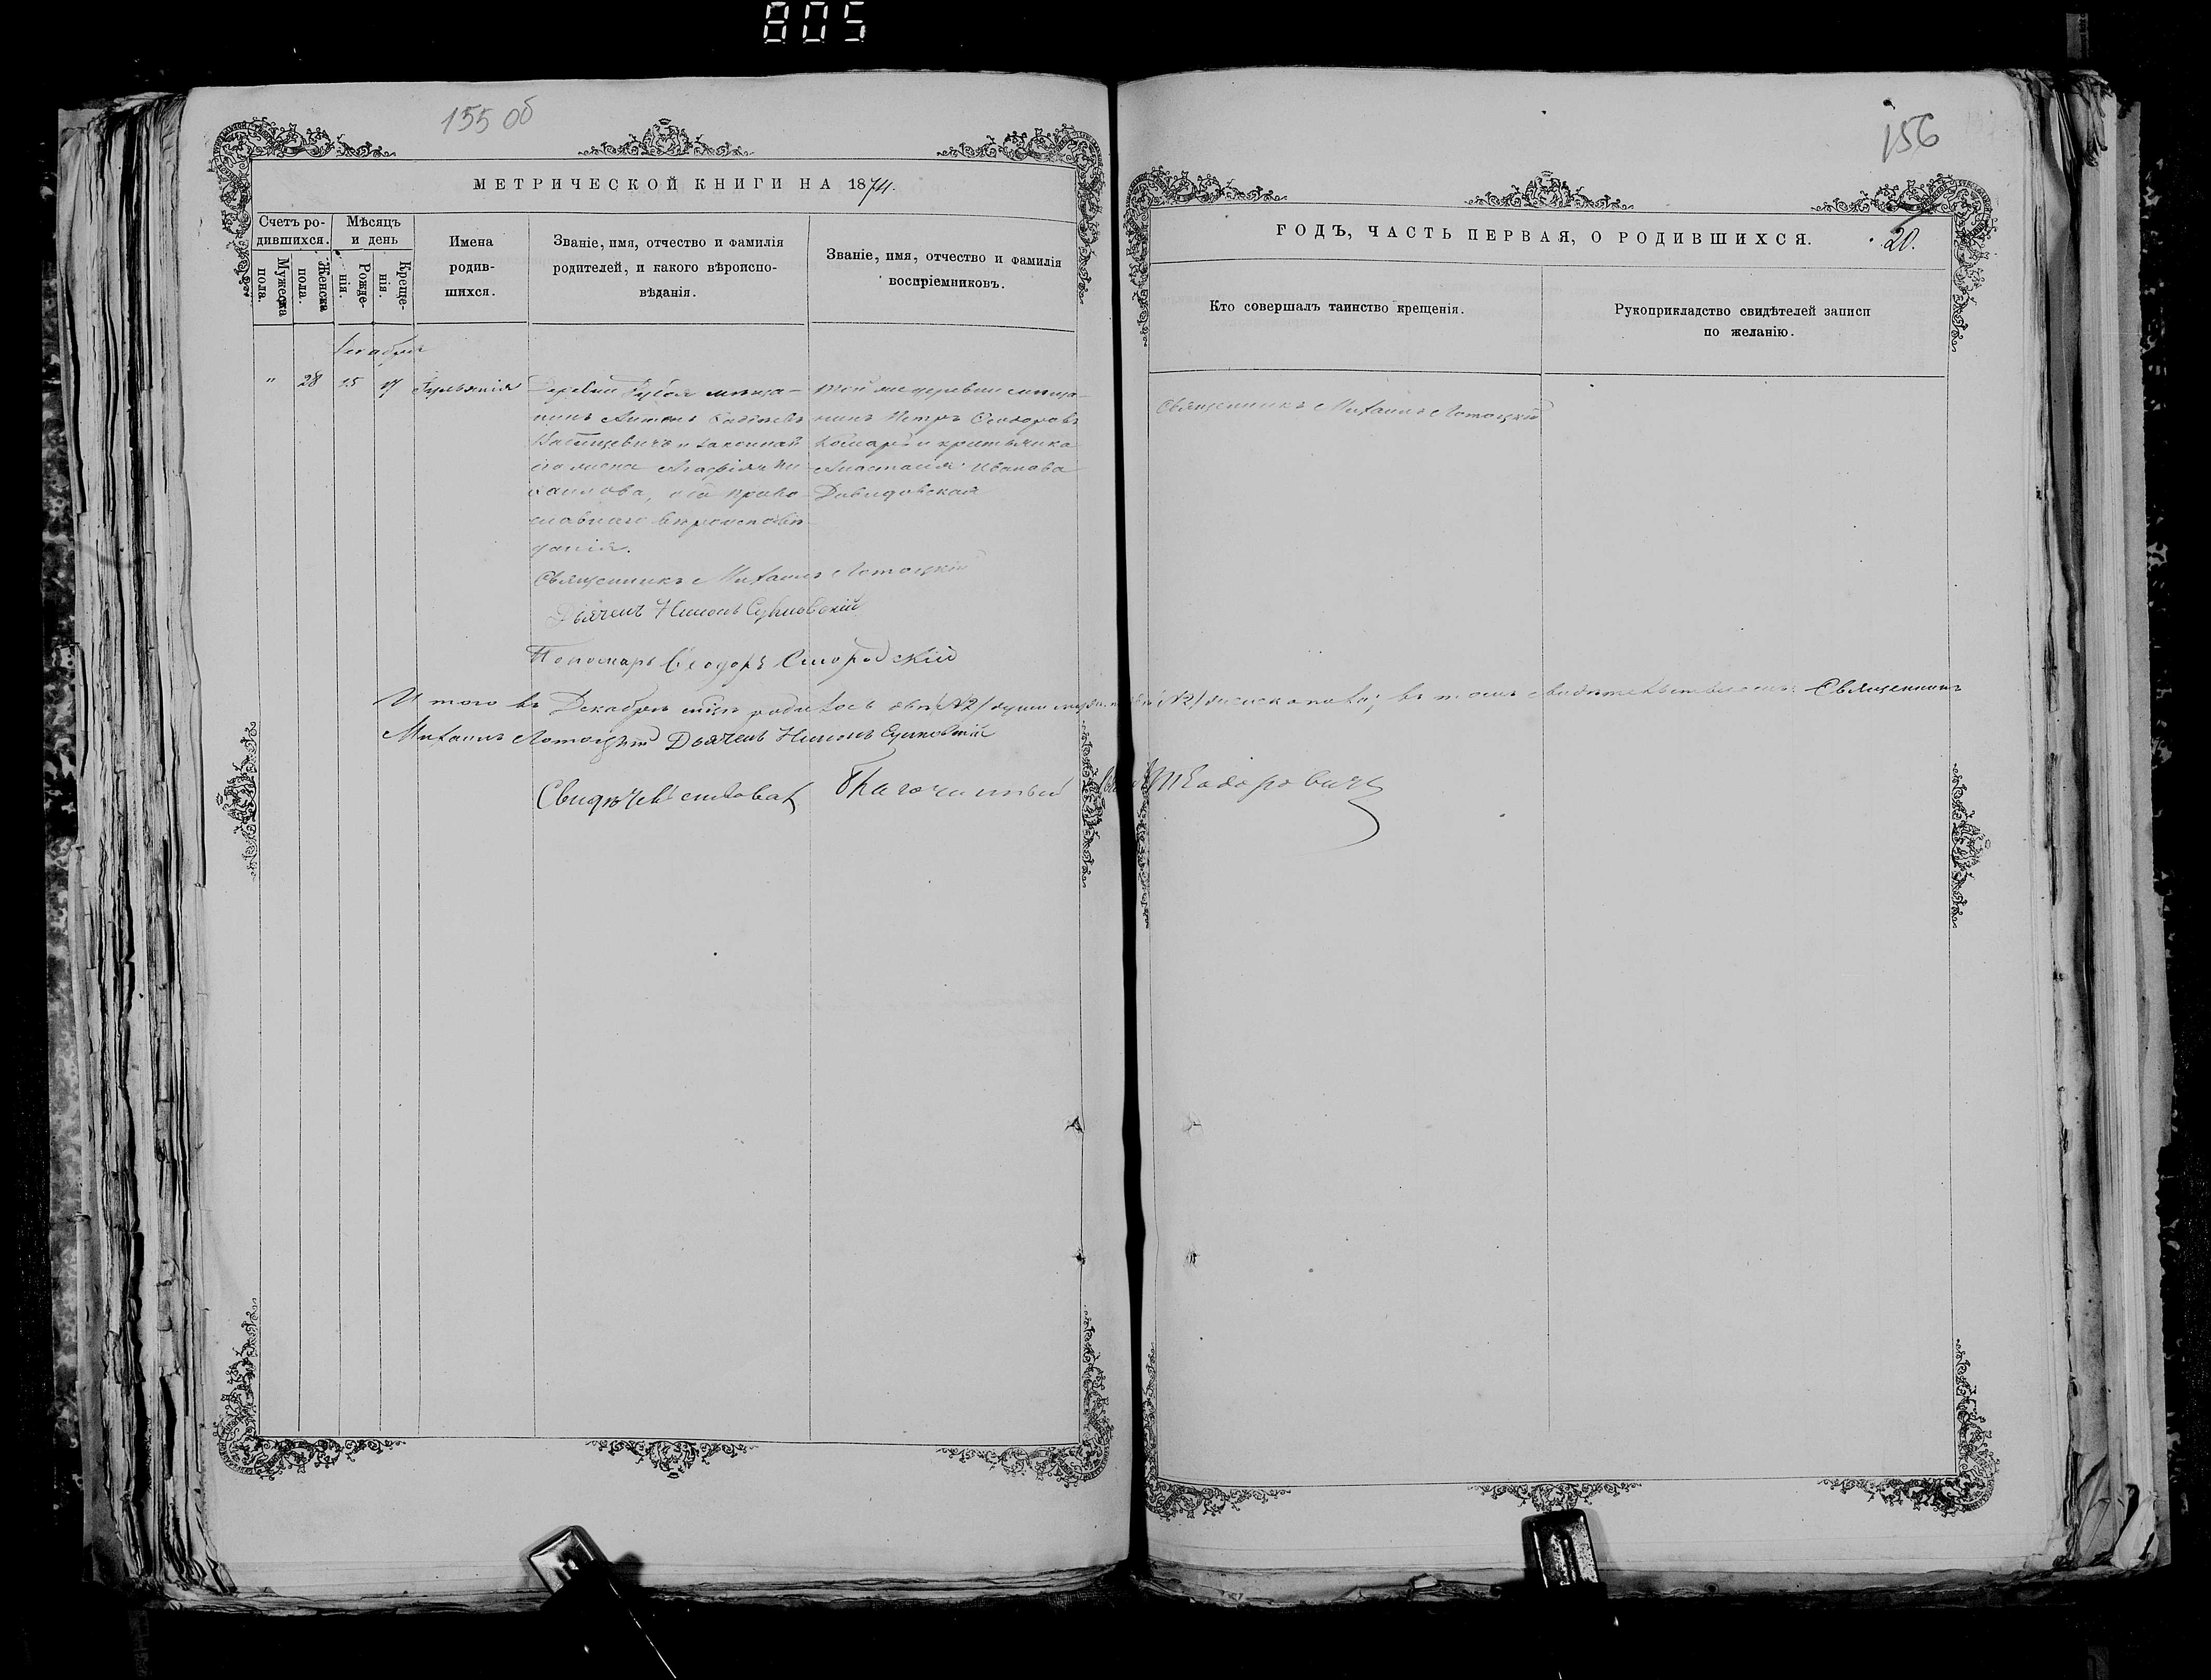 805
155 об
156
МЕТРИЧЕСКОЙ КНИГИ НА 1874.
ГОДЪ, ЧАСТЬ ПЕРВАЯ, О РОДИВШИХСЯ.
20.
Счетъ ро-
дившихся.
Мѣсяцъ
и день
Мужеска
пола.
Женска
пола.
Рожде-
нія.
Креще-
нія.
Имена
родив-
шихся.
Званіе, имя, отчество и фамилія
родителей, и какого вѣроиспо-
вѣданія.
Званіе, имя, отчество и фамилія
воспріемниковъ.
Кто совершалъ таинство крещенія.
Рукоприкладство свидѣтелей записи
по желанію.
Декабря
" 28 15 17 Іуліанія
Деревни мѣща-
нинъ Антонъ
и законная
его жена Агафія Ми-
хаилова, оба право-
славнаго вѣроисповѣ-
данія.
Той же деревни мѣща-
нинъ Петръ Ѳеодоровъ
Комаръ и крестьянка
Анастасія Иванова
Давидовская
Священникъ Михаилъ Лотоцкій
Священникъ Михаилъ Лотоцкій
Дьячекъ
Пономарь Ѳеодоръ
Итого въ Декабрѣ мѣсяцѣ родилось двѣ /№2/ души /№2/ женска пола; въ томъ свидѣтельствуемъ: Священникъ
Михаилъ Лотоцкій Дьячекъ
Свидѣтельствовалъ Благочинный Теодоровичъ